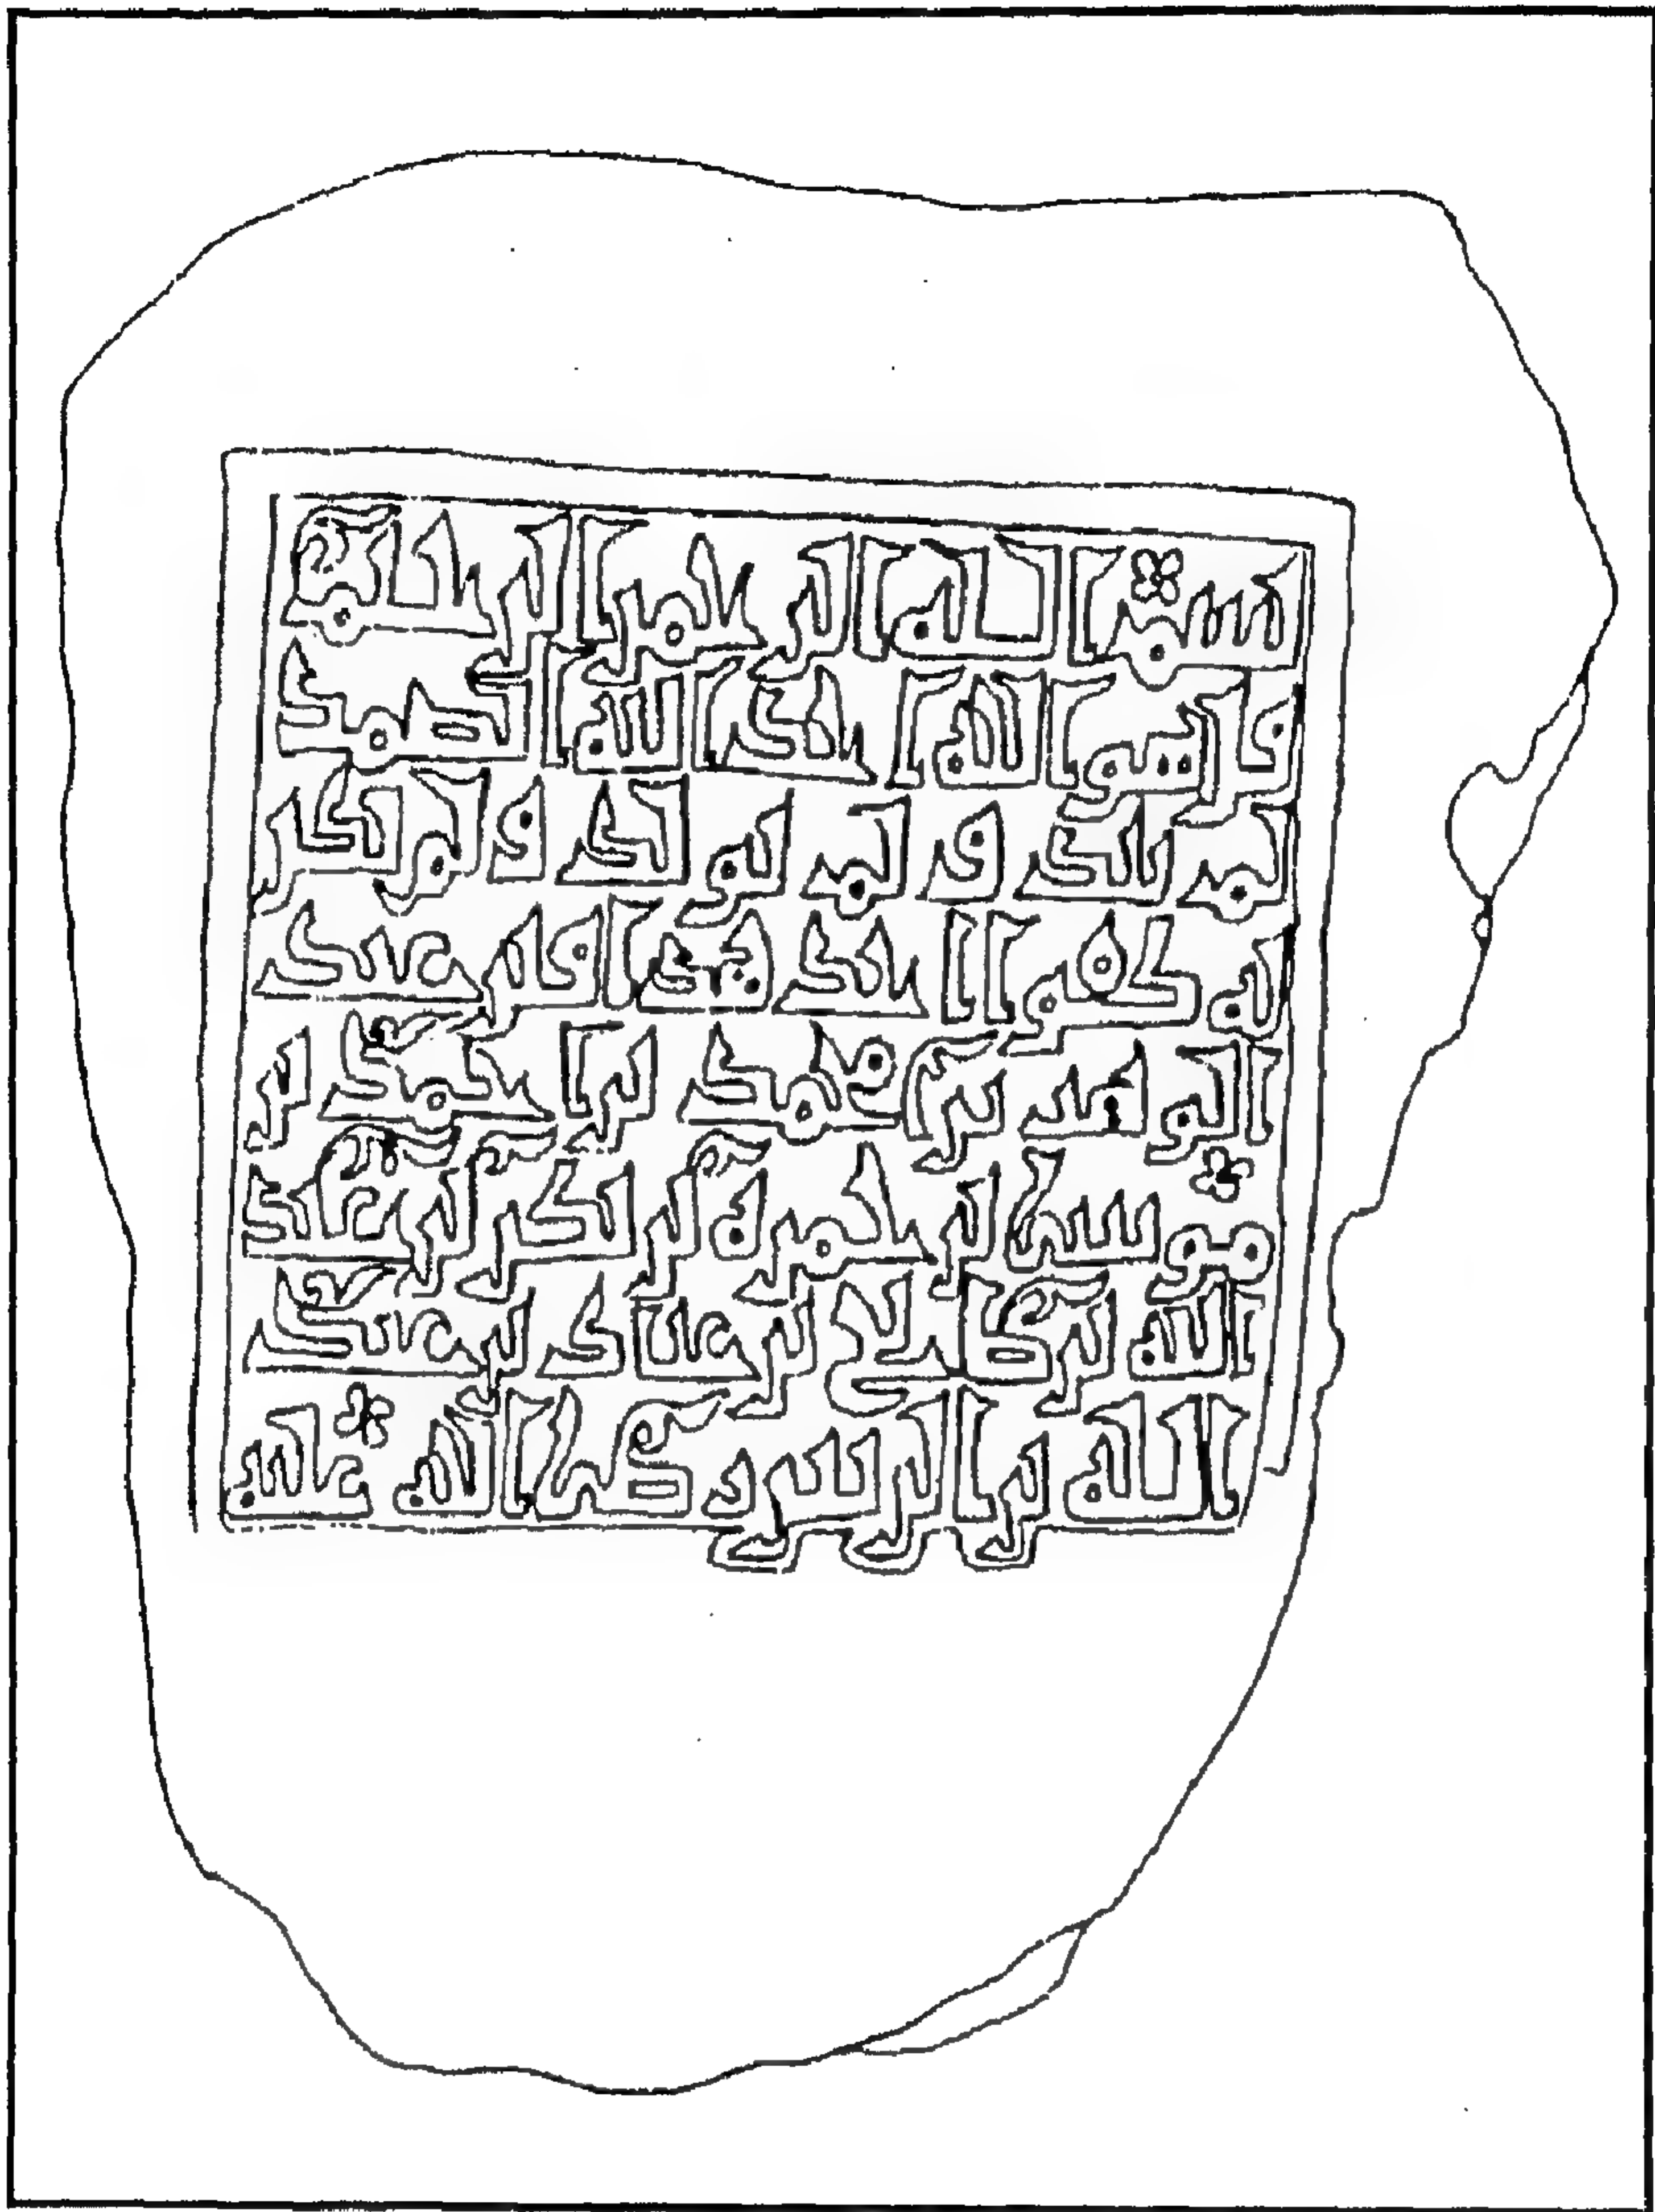 بسم الله الرحمن الرحيم
قل هو الله احد الله الصمد
لم يلد ولم يولد ولم يكن
له كفوا احد هذا قبر عبد
الواحد بن محمد بن بن
موسى بن حمزة بن بكر بن عبد
الله بن صالح بن بن عبد
الله صلى الله عليه